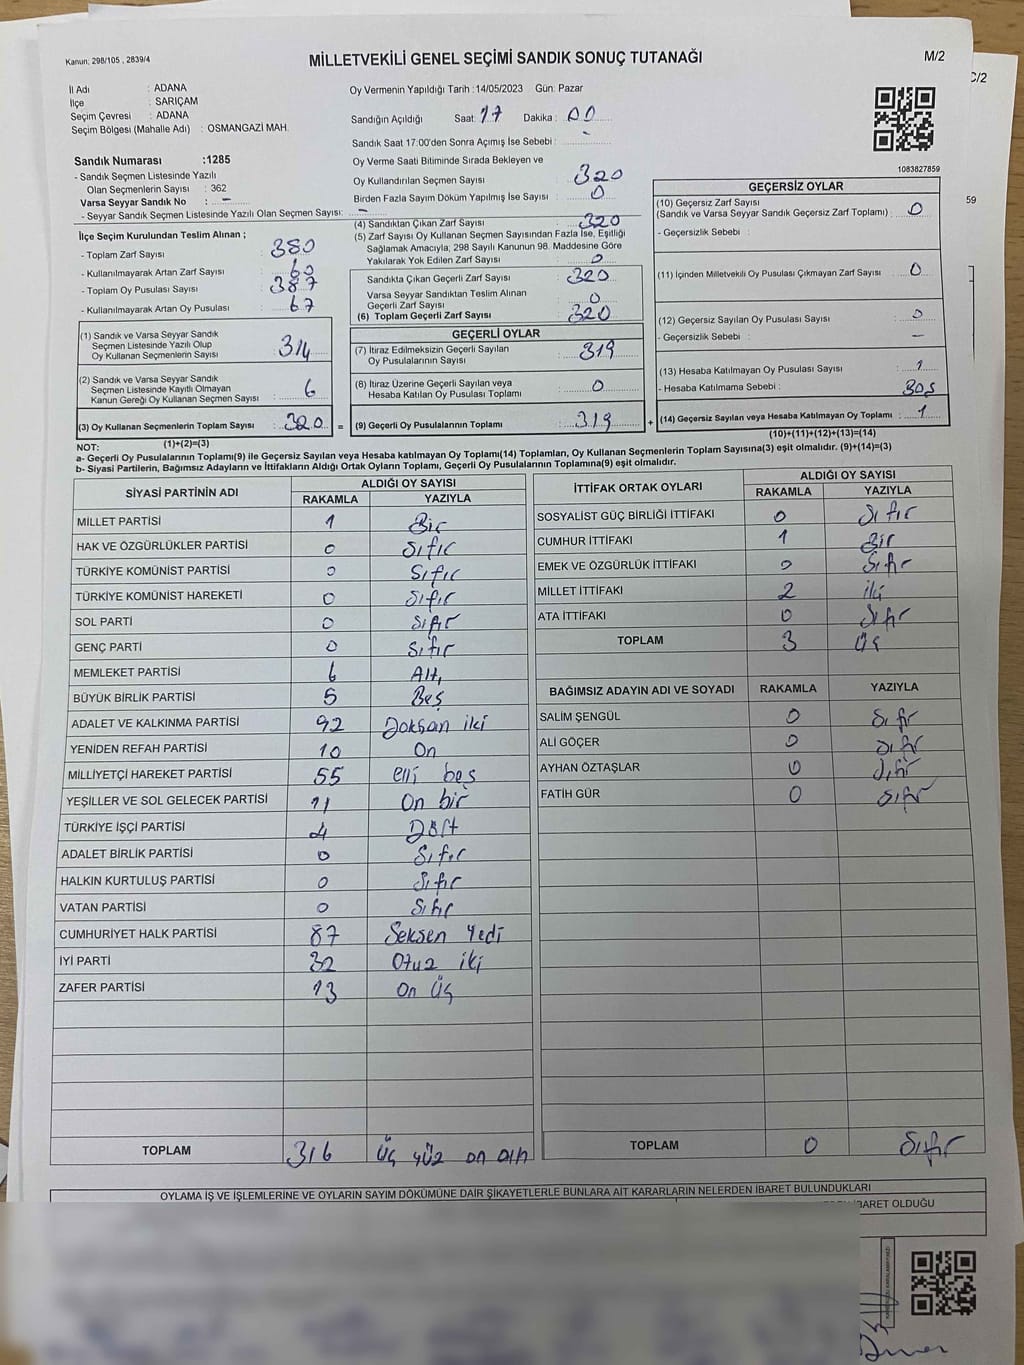 Kanun: 298/105 , 2839/4
MİLLETVEKİLİ GENEL SEÇİMİ SANDIK SONUÇ TUTANAĞI
M/2
C/2
İl Adı : ADANA
İlçe : SARIÇAM
Seçim Çevresi : ADANA
Seçim Bölgesi (Mahalle Adı) : OSMANGAZİ MAH.
Sandık Numarası :1285
- Sandık Seçmen Listesinde Yazılı
Olan Seçmenlerin Sayısı : 362
Varsa Seyyar Sandık No : -
- Seyyar Sandık Seçmen Listesinde Yazılı Olan Seçmen Sayısı: -
İlçe Seçim Kurulundan Teslim Alınan ;
- Toplam Zarf Sayısı : 380
- Kullanılmayarak Artan Zarf Sayısı : 60
- Toplam Oy Pusulası Sayısı : 387
- Kullanılmayarak Artan Oy Pusulası : 67
(1) Sandık ve Varsa Seyyar Sandık
Seçmen Listesinde Yazılı Olup
Oy Kullanan Seçmenlerin Sayısı : 314
(2) Sandık ve Varsa Seyyar Sandık
Seçmen Listesinde Kayıtlı Olmayan
Kanun Gereği Oy Kullanan Seçmen Sayısı : 6
(3) Oy Kullanan Seçmenlerin Toplam Sayısı : 320 =
Oy Vermenin Yapıldığı Tarih : 14/05/2023 Gün: Pazar
Sandığın Açıldığı Saat: 17 Dakika : 00
Sandık Saat 17:00'den Sonra Açımış İse Sebebi : -
Oy Verme Saati Bitiminde Sırada Bekleyen ve
Oy Kullandırılan Seçmen Sayısı : 320
Birden Fazla Sayım Döküm Yapılmış İse Sayısı : 0
(4) Sandıktan Çıkan Zarf Sayısı : 320
(5) Zarf Sayısı Oy Kullanan Seçmen Sayısından Fazla İse, Eşitliği
Sağlamak Amacıyla; 298 Sayılı Kanunun 98. Maddesine Göre
Yakılarak Yok Edilen Zarf Sayısı : 0
Sandıkta Çıkan Geçerli Zarf Sayısı : 320
Varsa Seyyar Sandıktan Teslim Alınan
Geçerli Zarf Sayısı : 0
(6) Toplam Geçerli Zarf Sayısı : 320
GEÇERLİ OYLAR
(7) İtiraz Edilmeksizin Geçerli Sayılan
Oy Pusulalarının Sayısı : 319
(8) İtiraz Üzerine Geçerli Sayılan veya
Hesaba Katılan Oy Pusulası Toplamı : 0
(9) Geçerli Oy Pusulalarının Toplamı : 319 +
1083827859
59
GEÇERSİZ OYLAR
(10) Geçersiz Zarf Sayısı
(Sandık ve Varsa Seyyar Sandık Geçersiz Zarf Toplamı) : 0
- Geçersizlik Sebebi :
(11) İçinden Milletvekili Oy Pusulası Çıkmayan Zarf Sayısı : 0
(12) Geçersiz Sayılan Oy Pusulası Sayısı : 0
- Geçersizlik Sebebi : -
(13) Hesaba Katılmayan Oy Pusulası Sayısı : 1
- Hesaba Katılmama Sebebi :
(14) Geçersiz Sayılan veya Hesaba Katılmayan Oy Toplamı : 1
NOT: (1)+(2)=(3) (10)+(11)+(12)+(13)=(14)
a- Geçerli Oy Pusulalarının Toplamı(9) ile Geçersiz Sayılan veya Hesaba katılmayan Oy Toplamı(14) Toplamları, Oy Kullanan Seçmenlerin Toplam Sayısına(3) eşit olmalıdır. (9)+(14)=(3)
b- Siyasi Partilerin, Bağımsız Adayların ve İttifakların Aldığı Ortak Oyların Toplamı, Geçerli Oy Pusulalarının Toplamına(9) eşit olmalıdır.
SİYASİ PARTİNİN ADI ALDIĞI OY SAYISI
RAKAMLA YAZIYLA
MİLLET PARTİSİ 1 Bir
HAK VE ÖZGÜRLÜKLER PARTİSİ 0 Sıfır
TÜRKİYE KOMÜNİST PARTİSİ 0 Sıfır
TÜRKİYE KOMÜNİST HAREKETİ 0 Sıfır
SOL PARTİ 0 Sıfır
GENÇ PARTİ 0 Sıfır
MEMLEKET PARTİSİ 6 Altı
BÜYÜK BİRLİK PARTİSİ 5 Beş
ADALET VE KALKINMA PARTİSİ 92 Doksan iki
YENİDEN REFAH PARTİSİ 10 On
MİLLİYETÇİ HAREKET PARTİSİ 55 elli beş
YEŞİLLER VE SOL GELECEK PARTİSİ 11 On bir
TÜRKİYE İŞÇİ PARTİSİ 4 Dört
ADALET BİRLİK PARTİSİ 0 Sıfır
HALKIN KURTULUŞ PARTİSİ 0 Sıfır
VATAN PARTİSİ 0 Sıfır
CUMHURİYET HALK PARTİSİ 87 Seksen Yedi
İYİ PARTİ 32 Otuz iki
ZAFER PARTİSİ 13 On Üç
TOPLAM 316 Üç yüz on altı
İTTİFAK ORTAK OYLARI ALDIĞI OY SAYISI
RAKAMLA YAZIYLA
SOSYALİST GÜÇ BİRLİĞİ İTTİFAKI 0 Sıfır
CUMHUR İTTİFAKI 1 Bir
EMEK VE ÖZGÜRLÜK İTTİFAKI 0 Sıfır
MİLLET İTTİFAKI 2 iki
ATA İTTİFAKI 0 Sıfır
TOPLAM 3 Üç
BAĞIMSIZ ADAYIN ADI VE SOYADI RAKAMLA YAZIYLA
SALİM ŞENGÜL 0 Sıfır
ALİ GÖÇER 0 Sıfır
AYHAN ÖZTAŞLAR 0 Sıfır
FATİH GÜR 0 Sıfır
TOPLAM 0 Sıfır
OYLAMA İŞ VE İŞLEMLERİNE VE OYLARIN SAYIM DÖKÜMÜNE DAİR ŞİKAYETLERLE BUNLARA AİT KARARLARIN NELERDEN İBARET BULUNDUKLARI
İBARET OLDUĞU